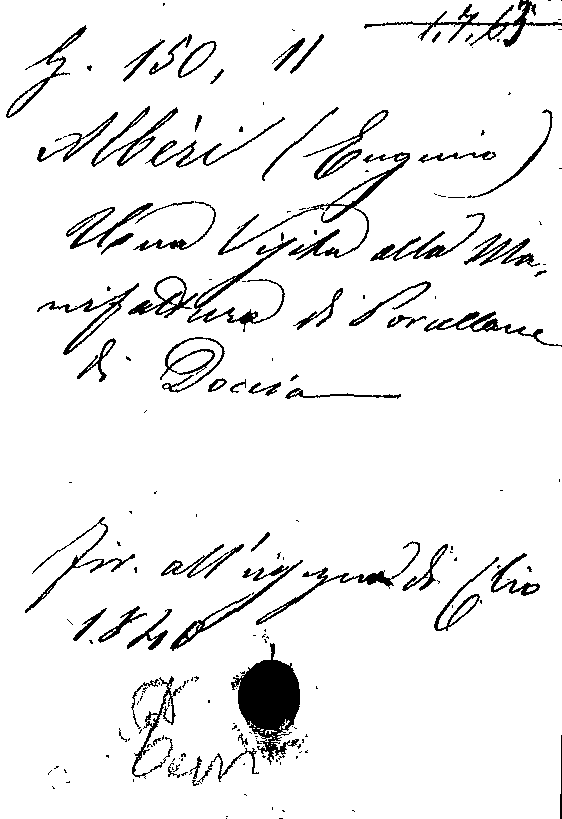 1.7.65
G. 150, 11
Albèri (Eugenio)
Una Visita alla Ma-
nifattura di Porcellane
di Doccia
Fir. all'insegna di Clio
1840